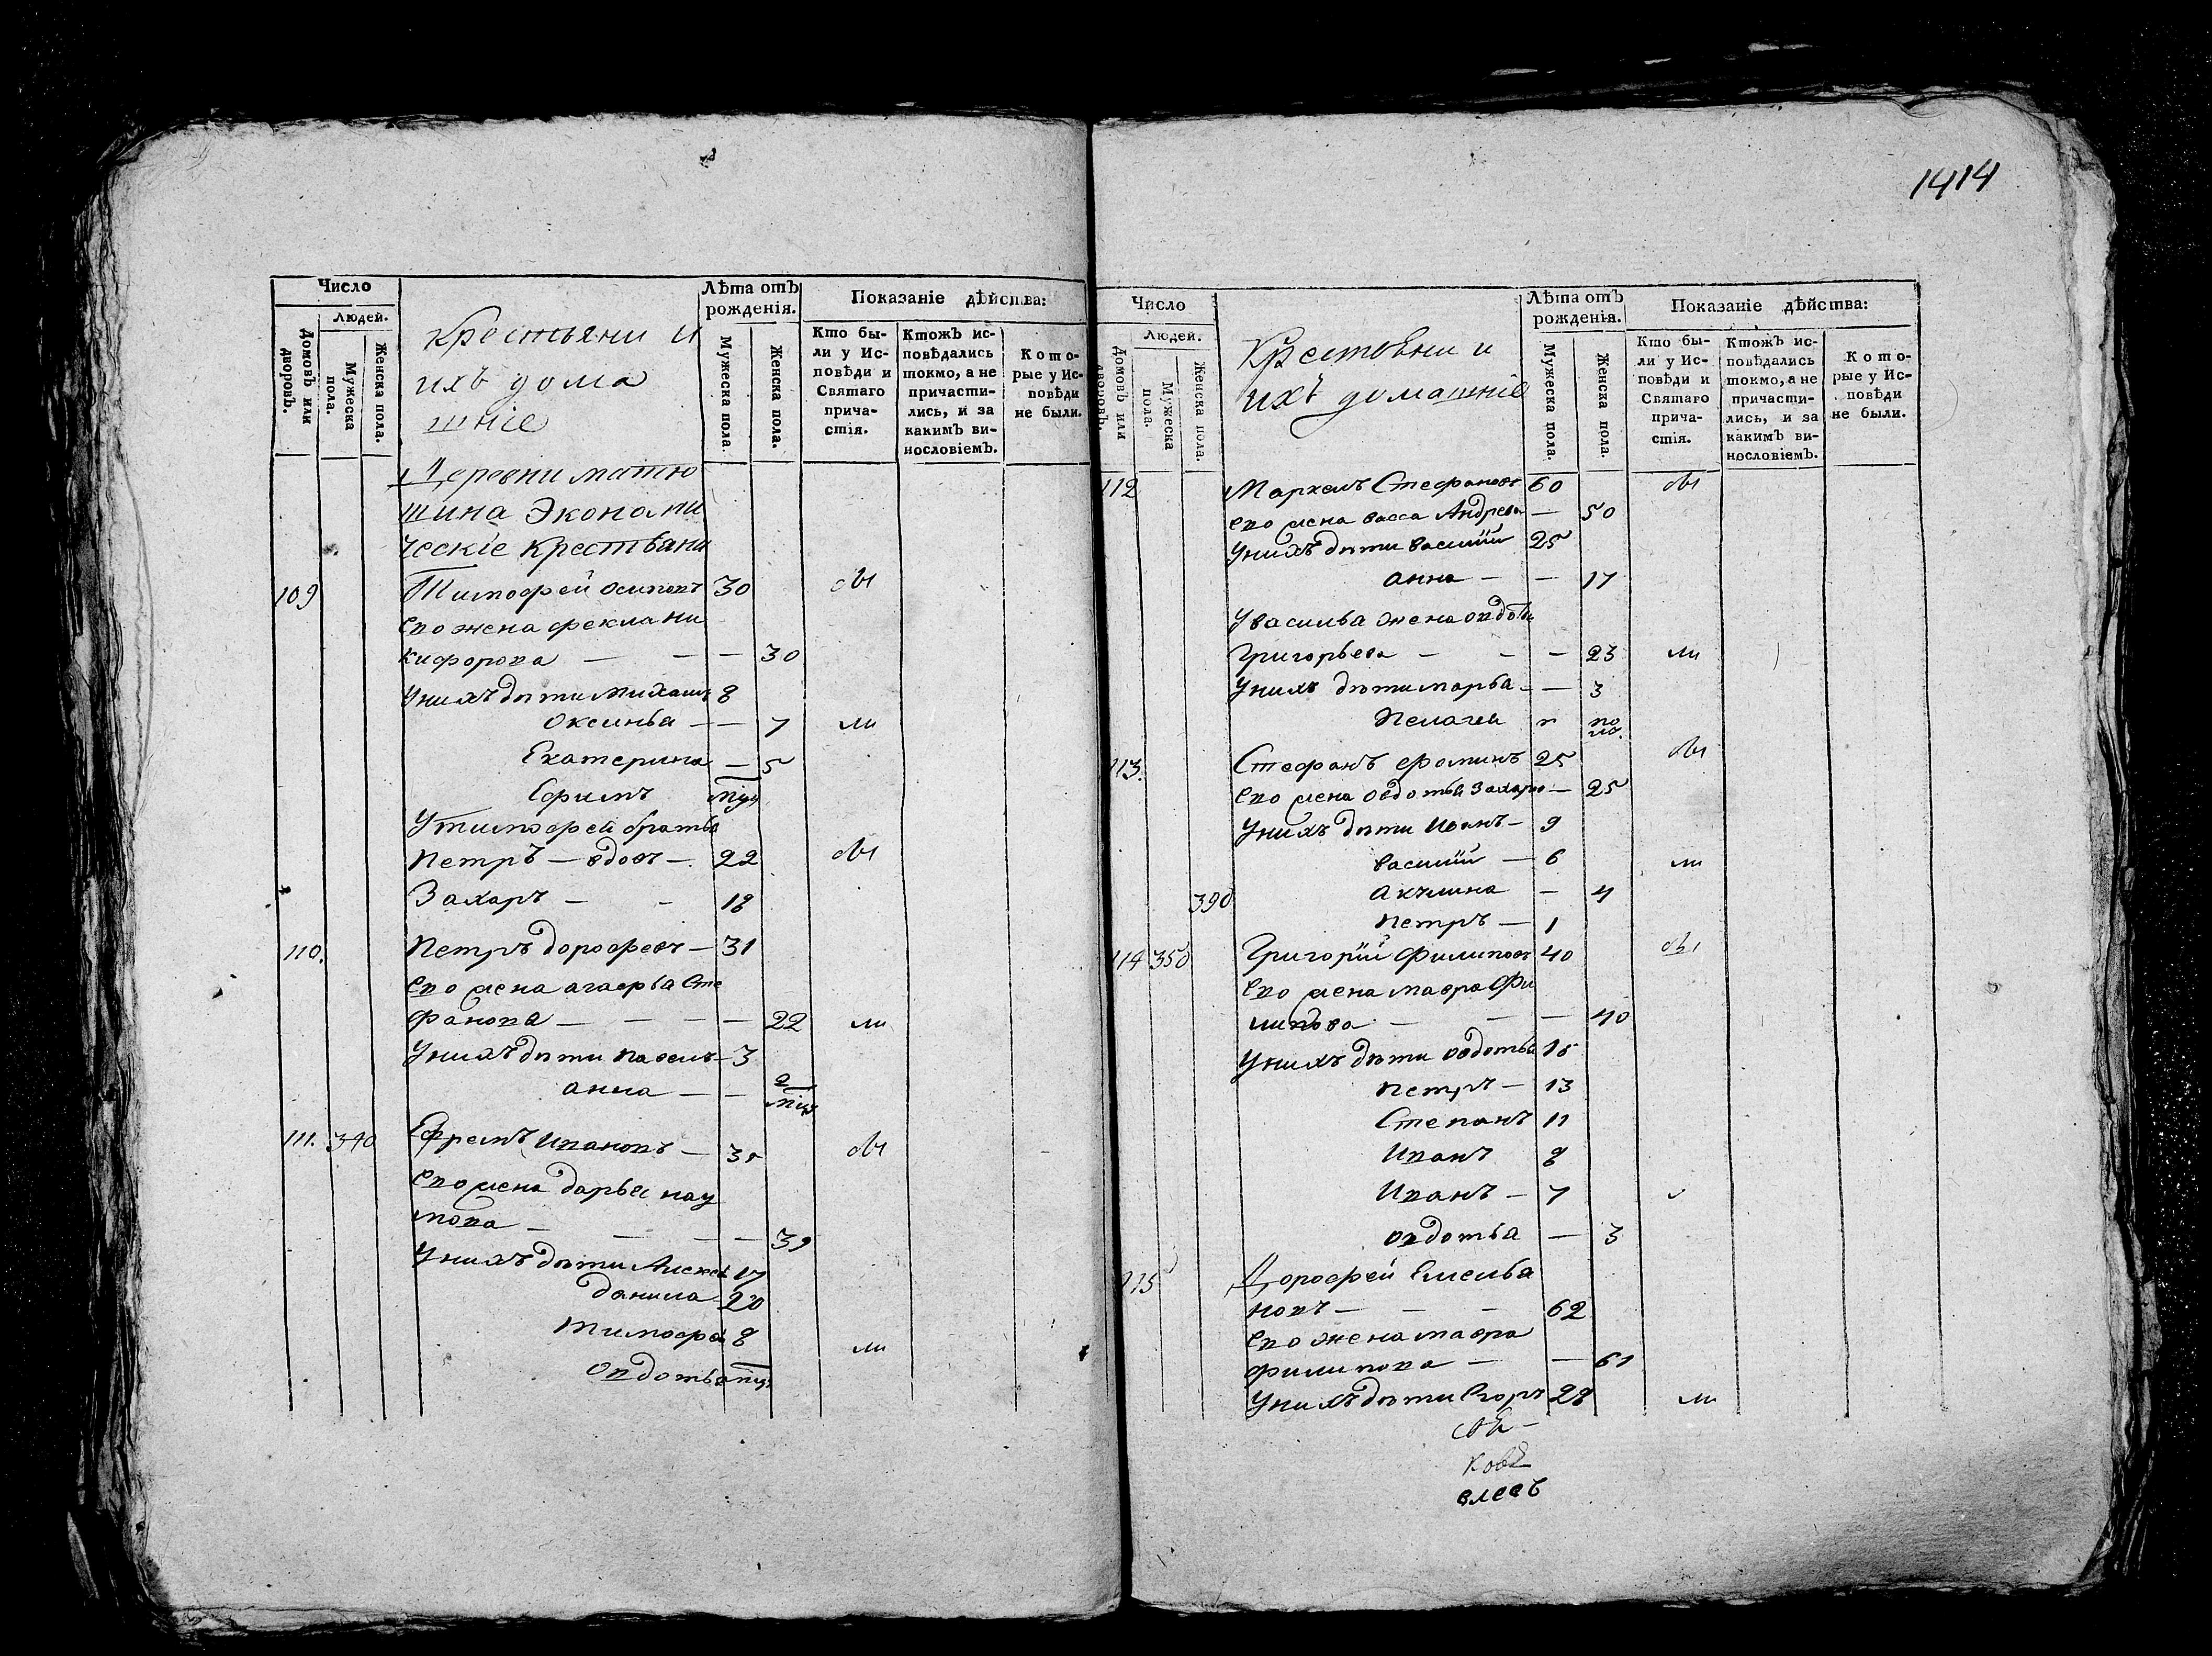 1414
Число
Людей.
Домовъ или дворовъ.
Мужеска пола.
Женска пола.
Крестьяни и
ихъ дома
шніе
Лѣта отъ
рожденія.
Мужеска пола.
Женска пола.
Показаніе дѣйства:
Кто бы-
ли у Ис-
повѣди и
Святаго
прича-
стія.
Ктожъ ис-
повѣдались
токмо, а не
причасти-
лись, и за
какимъ ви-
нословіемъ.
Кото-
рые у Ис-
повѣди
не были.
Деревни матю
шина Экономи
ческіе крестьяни
109 Тимофей осиповъ 30 бы
Ево жена фекла ни
кифорова — — — 30
Унихъ дѣти Михаилъ 8
Оксинья — — 7 ли
Екатерина — 5
Ефимъ
Утимофея братья
Петръ — вдовъ — 22 бы
Захаръ — — 18
110. Петръ дорофеевъ — 31
Ево жена агафья Сте
фанова — — — — 22 ли
Унихъ дѣти павелъ — 3
анна — — 2
111. 340 Ефремъ Ивановъ — бы
Ево жена дарья нау
мова — — — — 39
Унихъ дѣти Алексей 17
данила 20
тимофей 8 ли
Овдотья
Число
Людей.
Домовъ или дворовъ.
Мужеска пола.
Женска пола.
Крестьяни и
ихъ домашніе
Лѣта отъ
рожденія.
Мужеска пола.
Женска пола.
Показаніе дѣйства:
Кто бы-
ли у Ис-
повѣди и
Святаго
прича-
стія.
Ктожъ ис-
повѣдались
токмо, а не
причасти-
лись, и за
какимъ ви-
нословіемъ.
Кото-
рые у Ис-
повѣди
не были.
112 Маркелъ Стефановъ 60 бы
Ево жена васса Андреева — 50
Унихъ дѣти василий 25
анна — — 17
Увасилья жена овдотья
Григорьева — — — 23 ли
Унихъ дѣти марья — — 3
Пелагея
113. Стефанъ фоминъ 25 бы
Ево жена овдотья Захаро — 25
Унихъ дѣти Иванъ — 9
василий — 6 ли
акулина — 4
390
Петръ — 1
114 350 Григорий Филиповъ 40 бы
Ево жена мавра Фи
липова — — — 40
Унихъ дѣти овдотья
Петръ — 13
Степанъ 11
Иванъ 8
Иванъ — 7
овдотья — 3
115 Дорофей Емелья
новъ — — — 62
Ево жена мавра
филипова — — 61
Унихъ дѣти Егоръ 28 ли